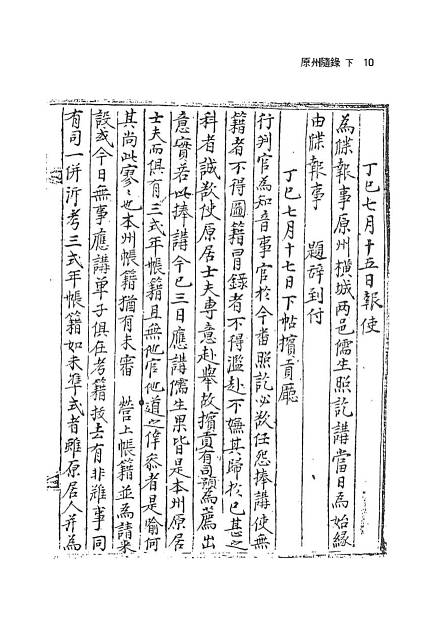 原州隨錄 下 10
丁巳七月十五日報使
為牒報事原州橫城两邑儒生照訖講當日為始緣
由牒報事 題辞到付
丁巳七月十七日下帖擯貢廳
行判官為知音事官於今番照訖必欲任怨捧講使無
籍者不得圖籍冒錄者不得濫赴不嫌其歸於已甚之
科者誠欲使原居士夫專意赴舉故擯貢有司預為薦出
意實若此捧講今已三日應講儒生果皆是本州原居
士夫而俱有三式年帳籍且無他官他道之倖叅者是喻何
其尚此寥〻也本州帳籍猶有未審 營上帳籍並為請来
設或今日無事應講單子俱在考籍技去有非難事同
有司一併沂考三式年帳籍如未準式者雖原居人并為